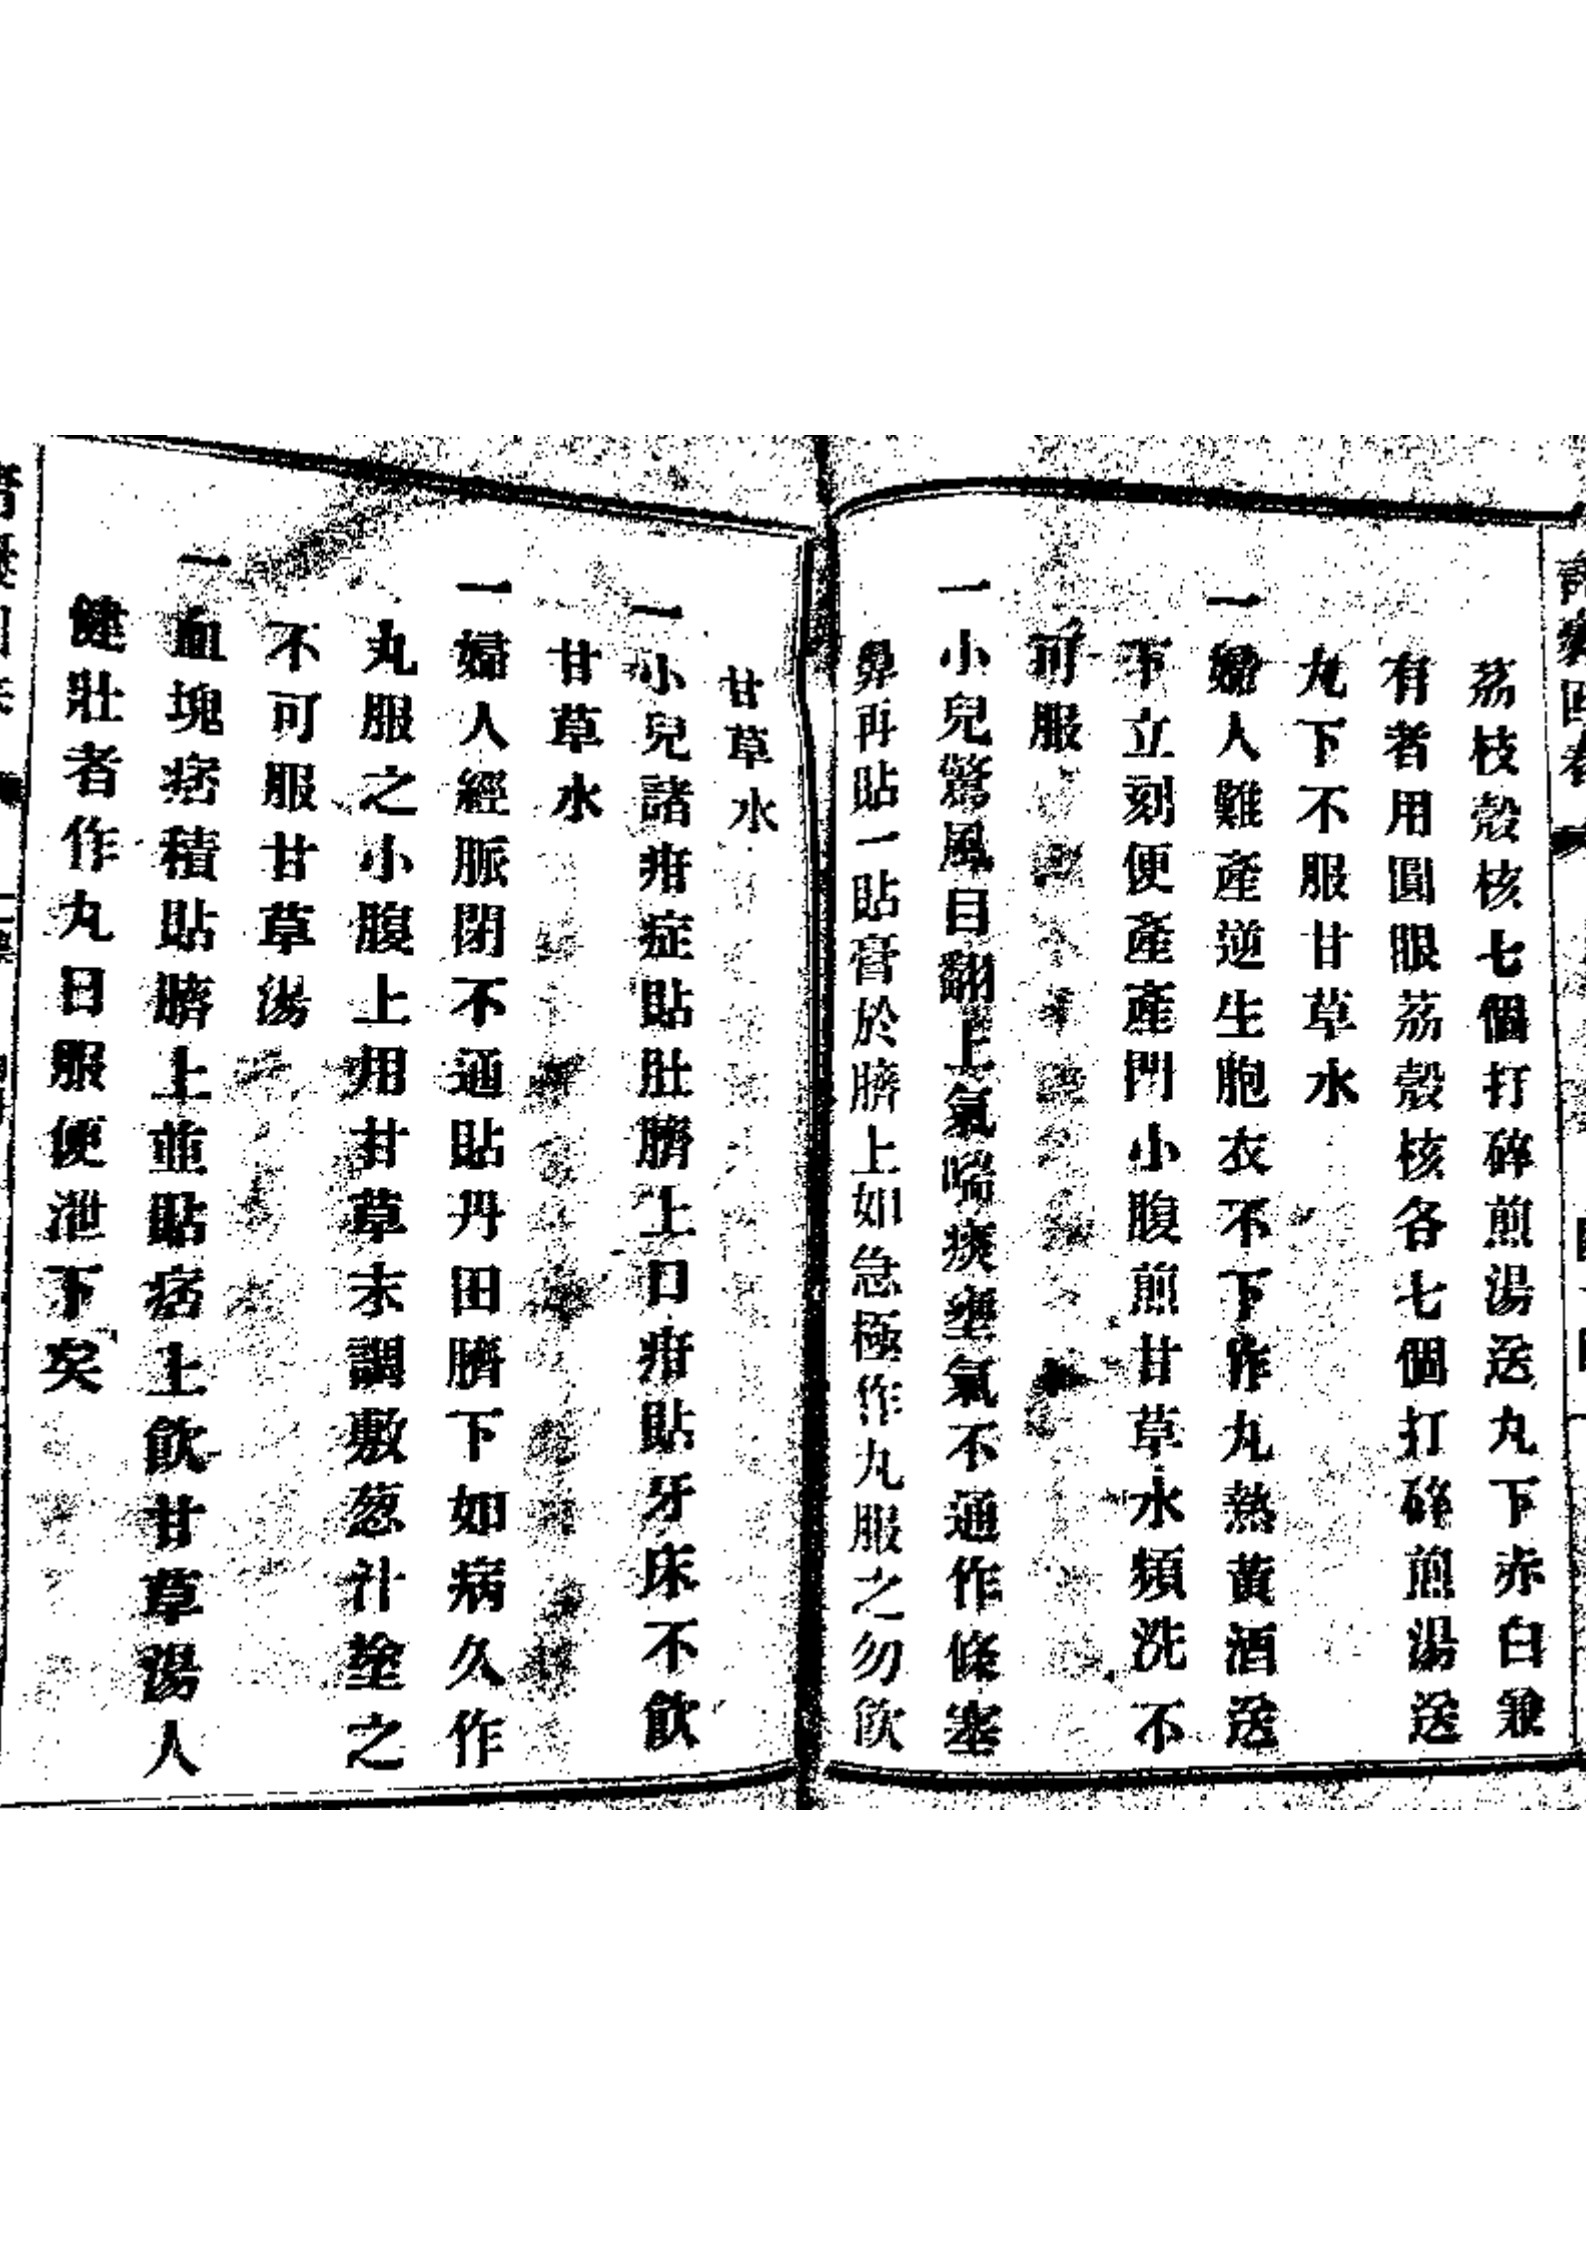 荔枝殼核七個打碎煎湯送丸下赤白兼
有者用圓眼荔殼核各七個打碎煎湯送
丸下不服甘草水
一婦人難產逆生胞衣不下作丸熱黃酒送
下立刻便產產門小腹煎甘草水頻洗不
可服
一小兒驚風目翻上氣喘痰壅氣不通作條塞
鼻再貼一貼膏於臍上如急極作丸服之勿飲
甘草水
一小兒諸疳症貼肚臍上口疳貼牙床不飲
甘草水
一婦人經脈閉不通貼丹田臍下如病久作
丸服之小腹上用甘草末調敷葱汁塗之
不可服甘草湯
一血塊痞積貼臍上並貼痞上飲甘草湯人
健壯者作丸日服便泄下矣